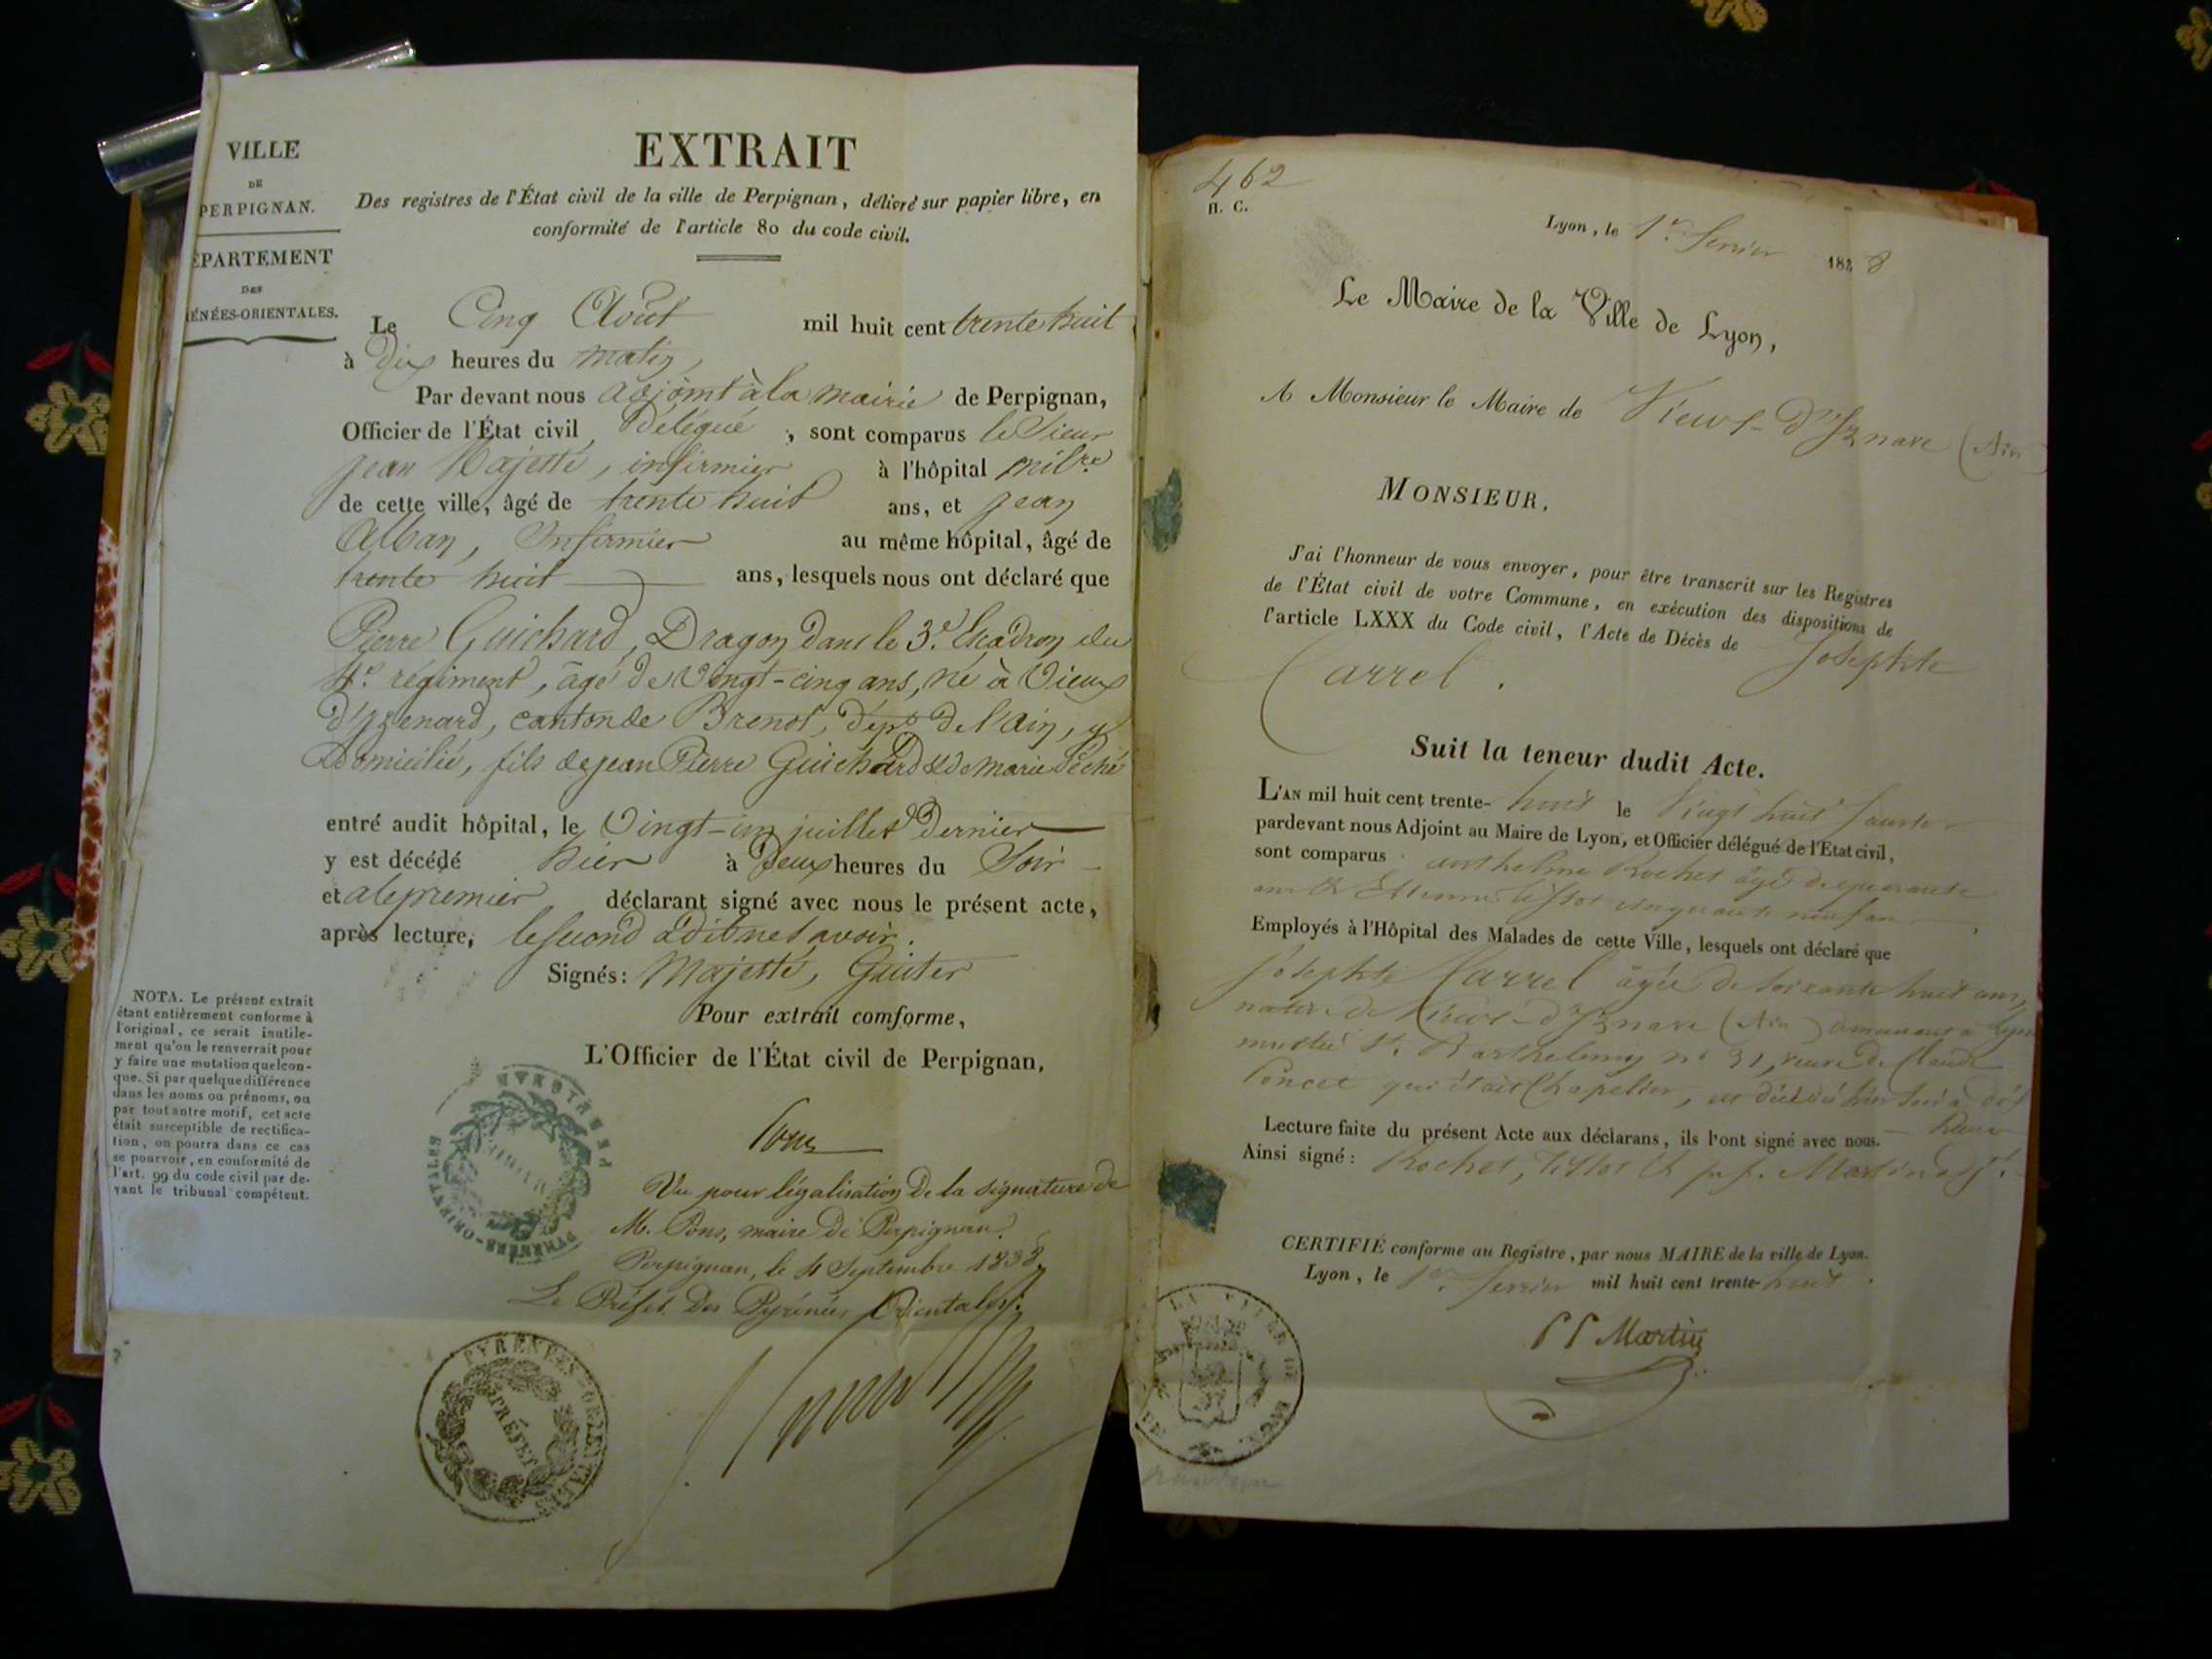 VILLE
DE
PERPIGNAN.
ÉPARTEMENT
DES
ÉNÉES-ORIENTALES.
EXTRAIT
Des registres de l'État civil de la ville de Perpignan, délivré sur papier libre, en
conformité de l'article 80 du code civil.
Le Cinq Août mil huit cent trente huit
à Dix heures du matin,
Par devant nous adjoint à la mairie de Perpignan,
Officier de l'État civil, Délégué, sont comparus le Sieur
Jean Majesté, infirmier à l'hôpital milre
de cette ville, âgé de trente huit ans, et Jean
Alban, Infirmier au même hôpital, âgé de
trente huit ans, lesquels nous ont déclaré que
Pierre Guichard, Dragon dans le 3e. Escadron du
4e. régiment, âgé de Vingt-cinq ans, né à Vieux
d'Yzenard, canton de Brenod, dépt De l'ain, y
Domicilié, fils de jean Pierre Guichard & de Marie Péché
entré audit hôpital, le Vingt-un juillet Dernier
y est décédé hier à Deux heures du Soir
et a le premier déclarant signé avec nous le présent acte,
après lecture, le second a dit ne savoir.
Signés: Majesté, Guiter
Pour extrait comforme,
L'Officier de l'État civil de Perpignan,
Pons
Vu pour légalisation De la signature de
M. Pons, maire De Perpignan.
Perpignan, le 4 Septembre 1838.
Le Préfet Des Pyrénées Orientales.
PYRÉNÉES-ORIENTALES
PRÉFET
PERPIGNAN
PYRÉNÉES-ORIENTALES
NOTA. Le présent extrait
étant entièrement conforme à
l'original, ce serait inutile-
ment qu'on le renverrait pour
y faire une mutation quelcon-
que. Si par quelque différence
dans les noms ou prénoms, ou
par tout antre motif, cet acte
était susceptible de rectifica-
tion, on pourra dans ce cas
se pourvoir, en conformité de
l'art. 99 du code civil par de-
vant le tribunal compétent.
462
H. C.
Lyon, le 1er. fevrier 1838
Le Maire de la Ville de Lyon,
A Monsieur le Maire de Vieux-D'Iznave (Ain
MONSIEUR,
J'ai l'honneur de vous envoyer, pour être transcrit sur les Registres
de l'État civil de votre Commune, en exécution des dispositions de
l'article LXXX du Code civil, l'Acte de Décès de Josephte
Carrel.
Suit la teneur dudit Acte.
L'AN mil huit cent trente-huit le Vingt huit Janvier
pardevant nous Adjoint au Maire de Lyon, et Officier délégué de l'État civil,
sont comparus anthelme Rochet âgé de quarante
ans & Etienne Tissot cinquante neuf ans
Employés à l'Hôpital des Malades de cette Ville, lesquels ont déclaré que
Josephte Carrel âgée de soixante huit ans,
native de Vieux-d'Iznave (Ain) demeurant à Lyon
montée St. Barthelemy no 31, veuve de Claude
Poncet qui était Chapelier, est décédée hier soir à dix
heures
Lecture faite du présent Acte aux déclarans, ils l'ont signé avec nous.
Ainsi signé: Rochet, Tissot & Martin adjt.
CERTIFIÉ conforme au Registre, par nous MAIRE de la ville de Lyon.
Lyon, le 1er. fevrier mil huit cent trente-huit.
Martin
LA VILLE DE LYON